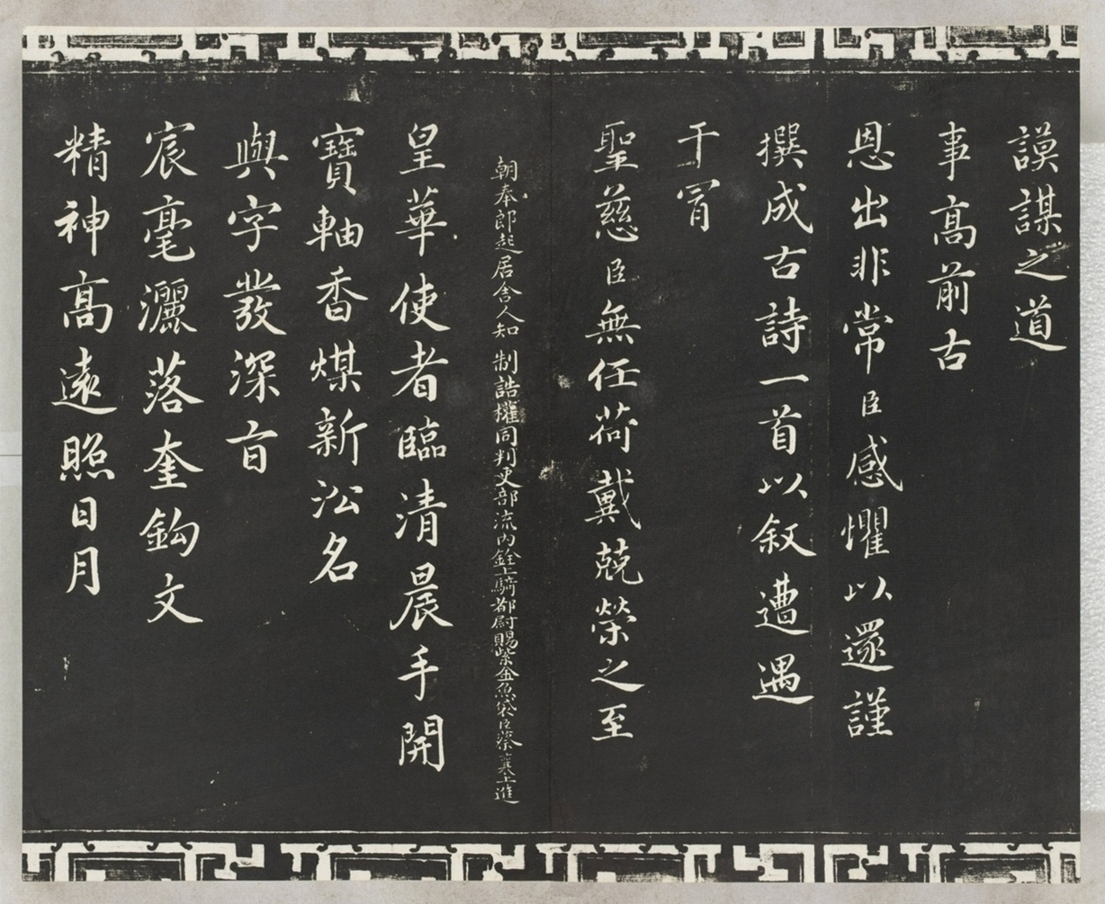 謨謀之道
事髙前古
恩出非常臣感懼以還謹
撰成古詩一首以叙遭遇
干冒
聖慈臣無任荷戴兢榮之至
朝奉郎起居舍人知制誥權同判吏部流内銓上騎都尉賜紫金魚袋臣蔡襄上進
皇華使者臨清晨手開
寶軸香煤新沿名
與字發深旨
宸毫灑落奎鈎文
精神髙逺照日月